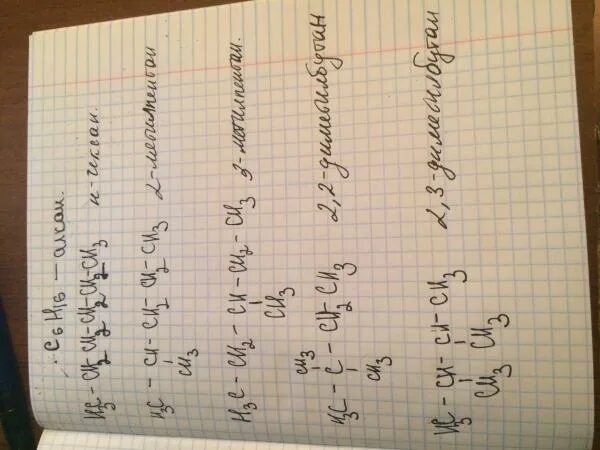 C6H16 – алкан.
H3C – CH2 CH2 – CH2 CH2 – CH3 н-гексан.
H3C – CH – CH2 CH2 – CH3 2-метилпентан
CH3
H3C – CH2 – CH – CH2 – CH3 3-метилпентан.
CH3
CH3
H3C – C – CH2 CH3 2,2-диметилбутан
CH3
H3C – CH – CH – CH3 2,3-диметилбутан
CH3 CH3